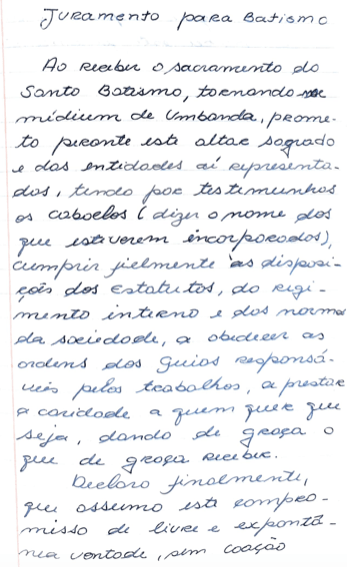 Juramento para Batismo
Ao receber o sacramento do
Santo Batismo, tornando-me
médium de Umbanda, prome-
to perante este altar sagrado
e das entidades aí representa-
das, tendo por testemunhas
os caboclos (dizer o nome dos
que estiverem incorporados),
cumprir fielmente às disposi-
ções dos Estatutos, do regi-
mento interno e das normas
da sociedade, a obedecer as
ordens dos guias responsá-
veis pelos trabalhos, a prestar
a caridade a quem quer que
seja, dando de graça o
que de graça receber.
Declaro finalmente,
que assumo este compro-
misso de livre e expontâ-
nea vontade, sem coação